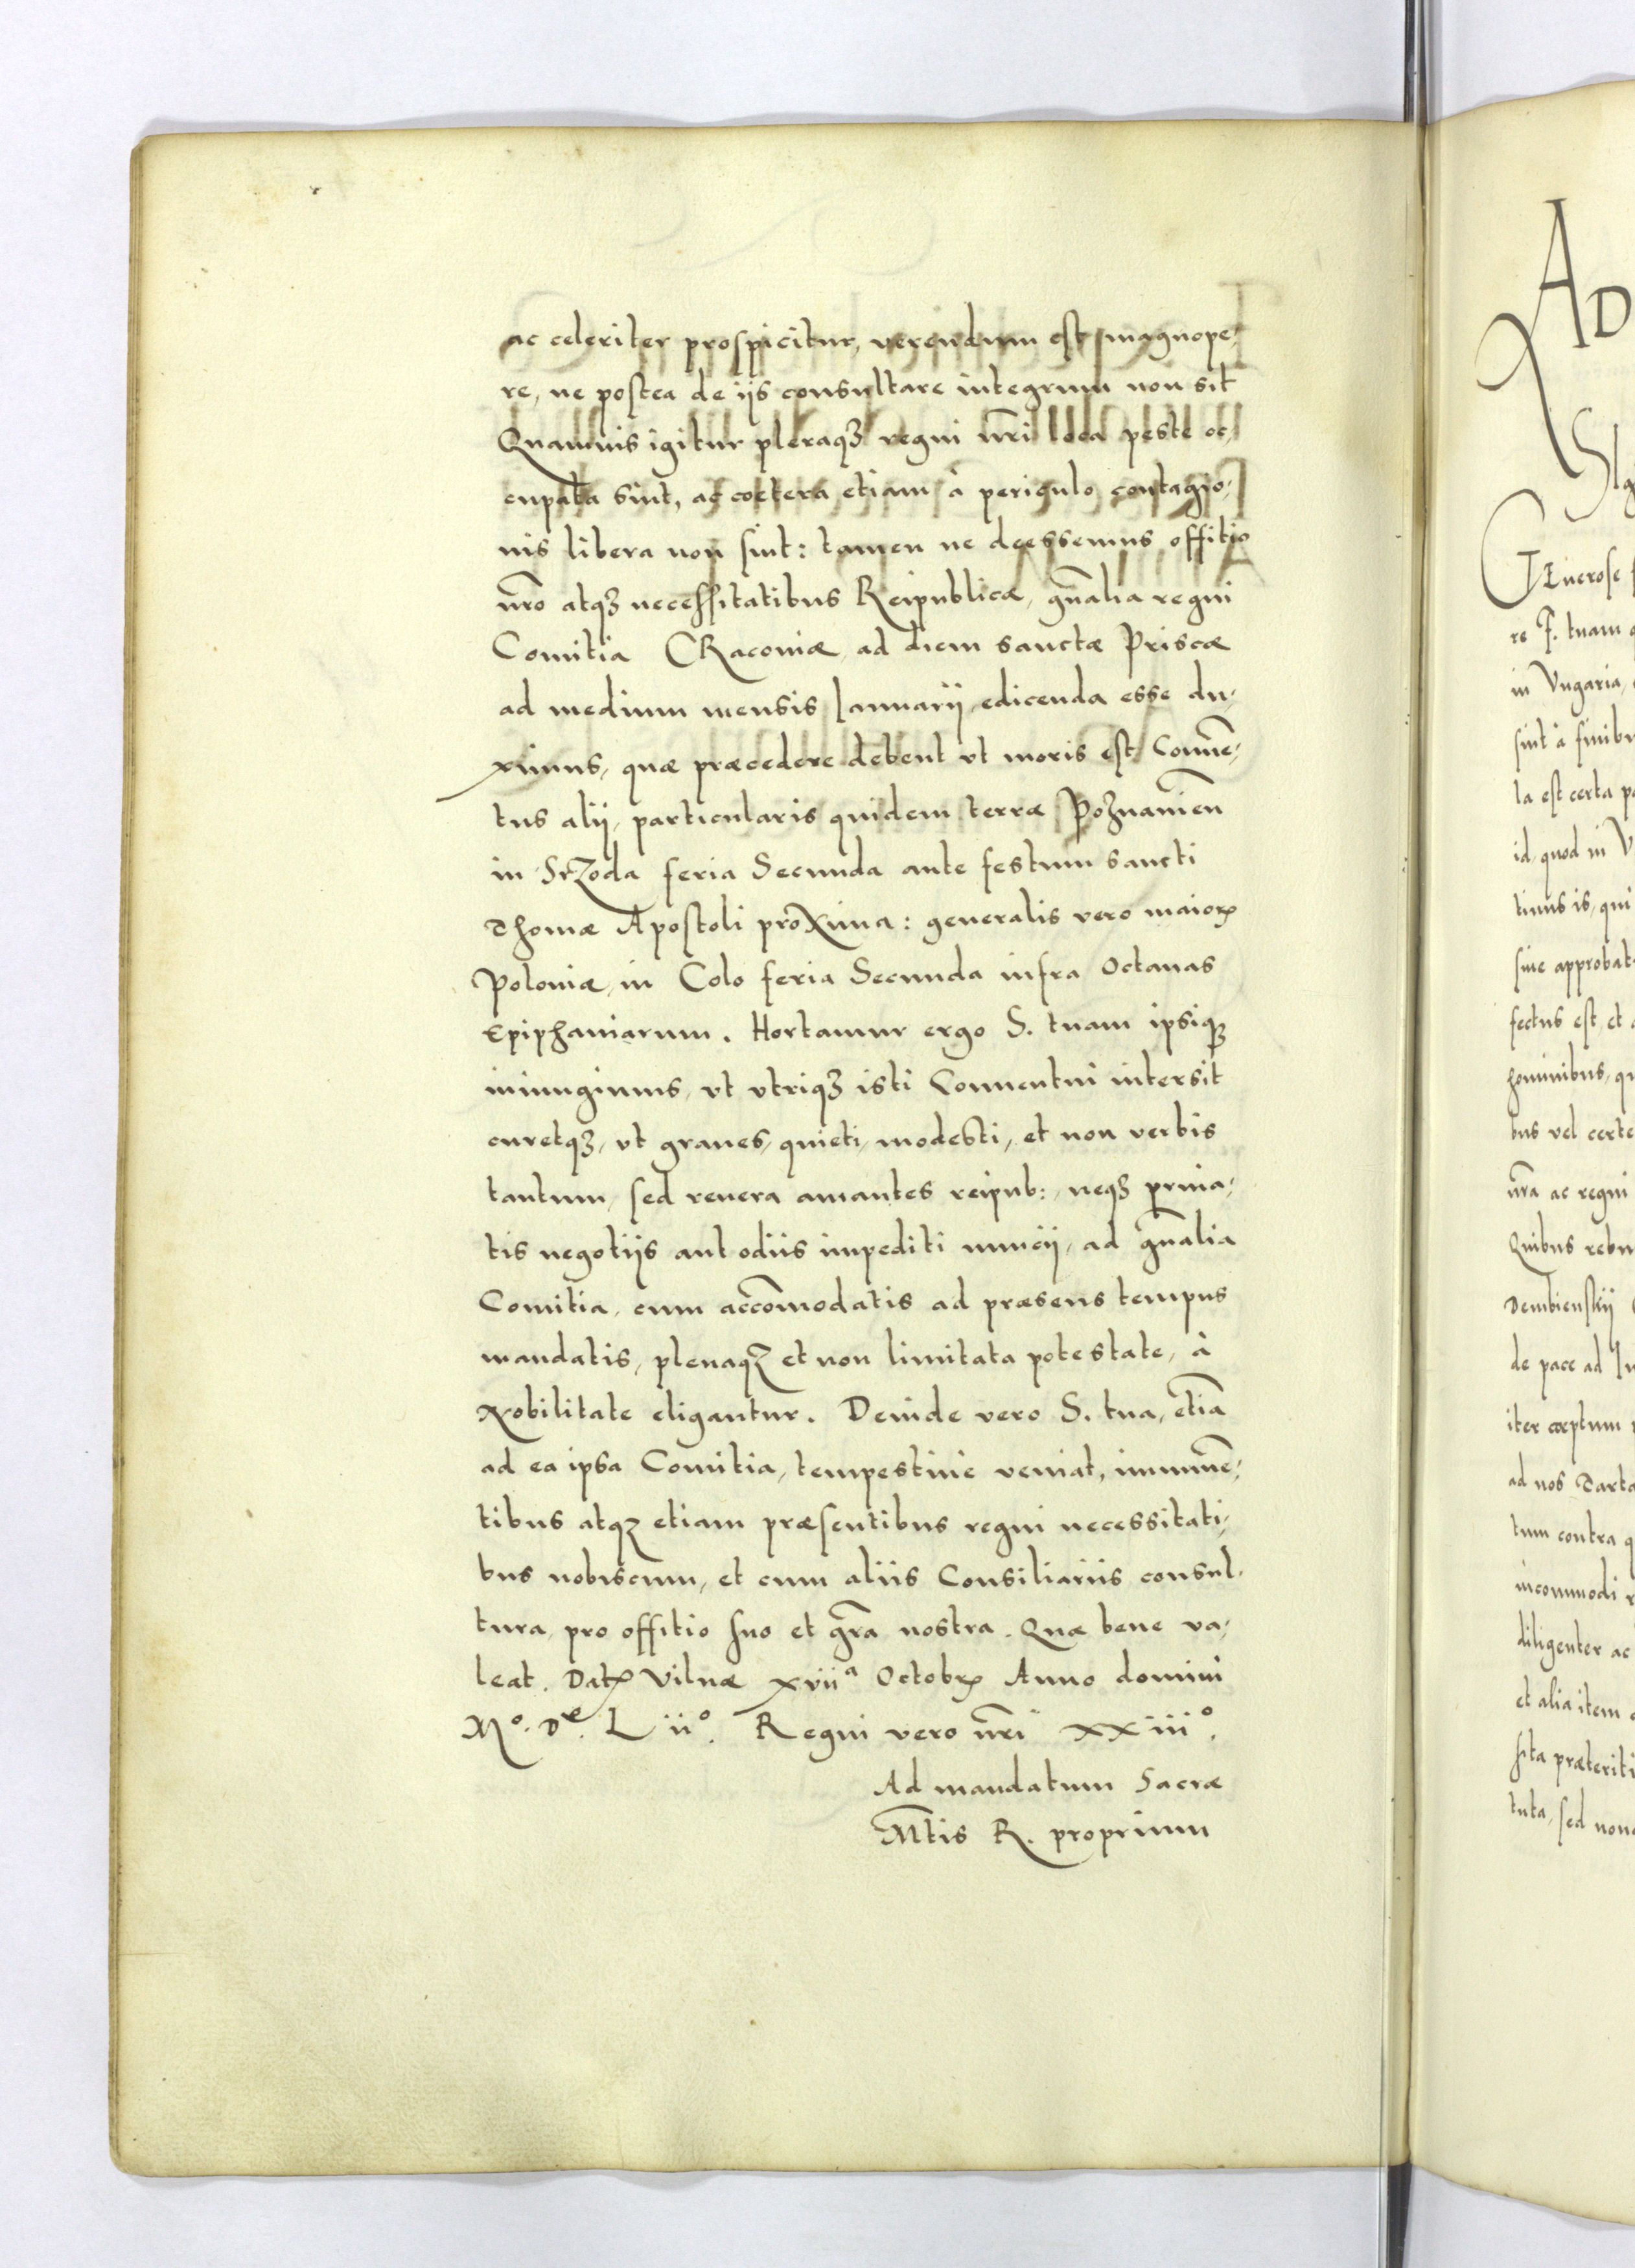 ac celeriter prospicitur, verendum est magnope-
re, ne postea de ijs consultare integrum non sit
Quamuis igitur pleraqꝫ regni nr̃i loca peste oc-
cupata sint, ac cætera etiam à periculo contagio-
nis libera non sint: tamen ne deessemus offitio
nr̃o atqꝫ necessitatibus Reipublicæ, gñalia regni
Comitia CRacouiæ, ad diem sanctæ Priscæ
ad medium mensis Ianuarij, edicenda esse du-
ximus, quæ præcedere debent vt moris est Conuẽ-
tus alij, particularis quidem terræ Poznanieñ
in SrZoda feria Secunda ante festum sancti
Thomæ Apostoli proXima: generalis vero maioꝝ
Poloniæ, in Colo feria Secunda infra Octauas
Epiphaniarum. Hortamur ergo S. tuam ipsiqꝫ
iniungimus, vt vtriqꝫ isti Conuentui intersit
curetqꝫ, vt graues, quieti, modesti, et non verbis
tantum, sed reuera amantes reipub:, neqꝫ priua-
tis negotijs aut odiis impediti nuncij, ad gñalia
Comitia, cum accõmodatis ad præsens tempus
mandatis, plenaqꝫ et non limitata potestate, à
Nobilitate eligantur. Deinde vero S. tua, etiã
ad ea ipsa Comitia, tempestiuè veniat, imminẽ-
tibus atqꝫ etiam præsentibus regni necessitati-
bus nobiscum, et cum aliis Consiliariis consul-
tura, pro offitio suo et gr̃a nostra. Quæ bene va-
leat. Datꝫ Vilnæ xviiᵃ Octobrꝫ Anno domini
Mº. Dᵉ. L iiº. Regni vero nr̃i XXiiiº.
Ad mandatum Sacræ
Mtis R. proprium
AD
GEnerose
re F. tuam
in Vngaria,
sint à finibu
la est certa
id, quod in V
timus is, qui
siue approbat
fectus est, et
hominibus, qu
bus vel certe
nr̃a ac regni
Quibus rebu
Dembienskij
de pace ad
iter cœptum
ad nos Tarta
tum contra
incommodi
diligenter ac
et alia item
sita præteriti
tuta, sed